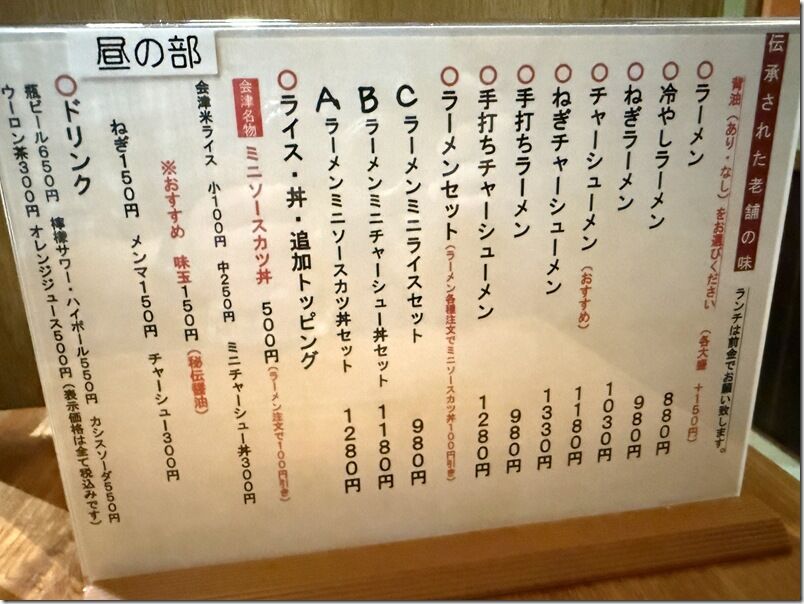 昼の部
伝承された老舗の味
ランチは前金でお願い致します。
背油(あり・なし)をお選びください (各大盛 +150円)
〇ラーメン 880円
〇冷やしラーメン 980円
〇ねぎラーメン 1030円
〇チャーシューメン(おすすめ) 1180円
〇ねぎチャーシューメン 1330円
〇手打ちラーメン 980円
〇手打ちチャーシューメン 1280円
〇ラーメンセット(ラーメン各種注文でミニソースカツ丼100円引き)
C ラーメンミニライスセット 980円
B ラーメンミニチャーシュー丼セット 1180円
A ラーメンミニソースカツ丼セット 1280円
〇ライス・丼・追加トッピング
会津名物 ミニソースカツ丼 500円(ラーメン注文で100円引き)
会津米ライス 小100円 中250円 ミニチャーシュー丼300円
※おすすめ 味玉150円(秘伝醤油)
ねぎ150円 メンマ150円 チャーシュー300円
〇ドリンク
瓶ビール650円 檸檬サワー・ハイボール550円 カシスソーダ550円
ウーロン茶300円 オレンジジュース500円(表示価格は全て税込みです)